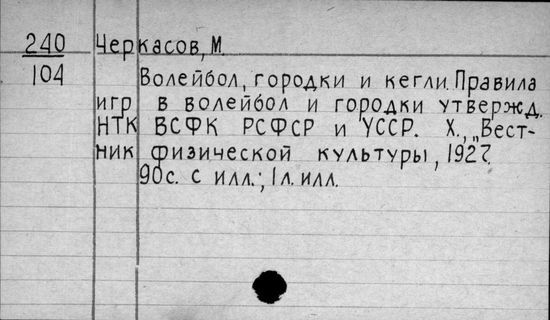 240 Черкасов, М.
104 Волейбол, городки и кегли. Правила
игр в волейбол и городки утвержд.
НТК ВСФК РСФСР и УССР. Х., „Вест-
ник физической культуры, 1927.
90с. с илл.; 1л. илл.